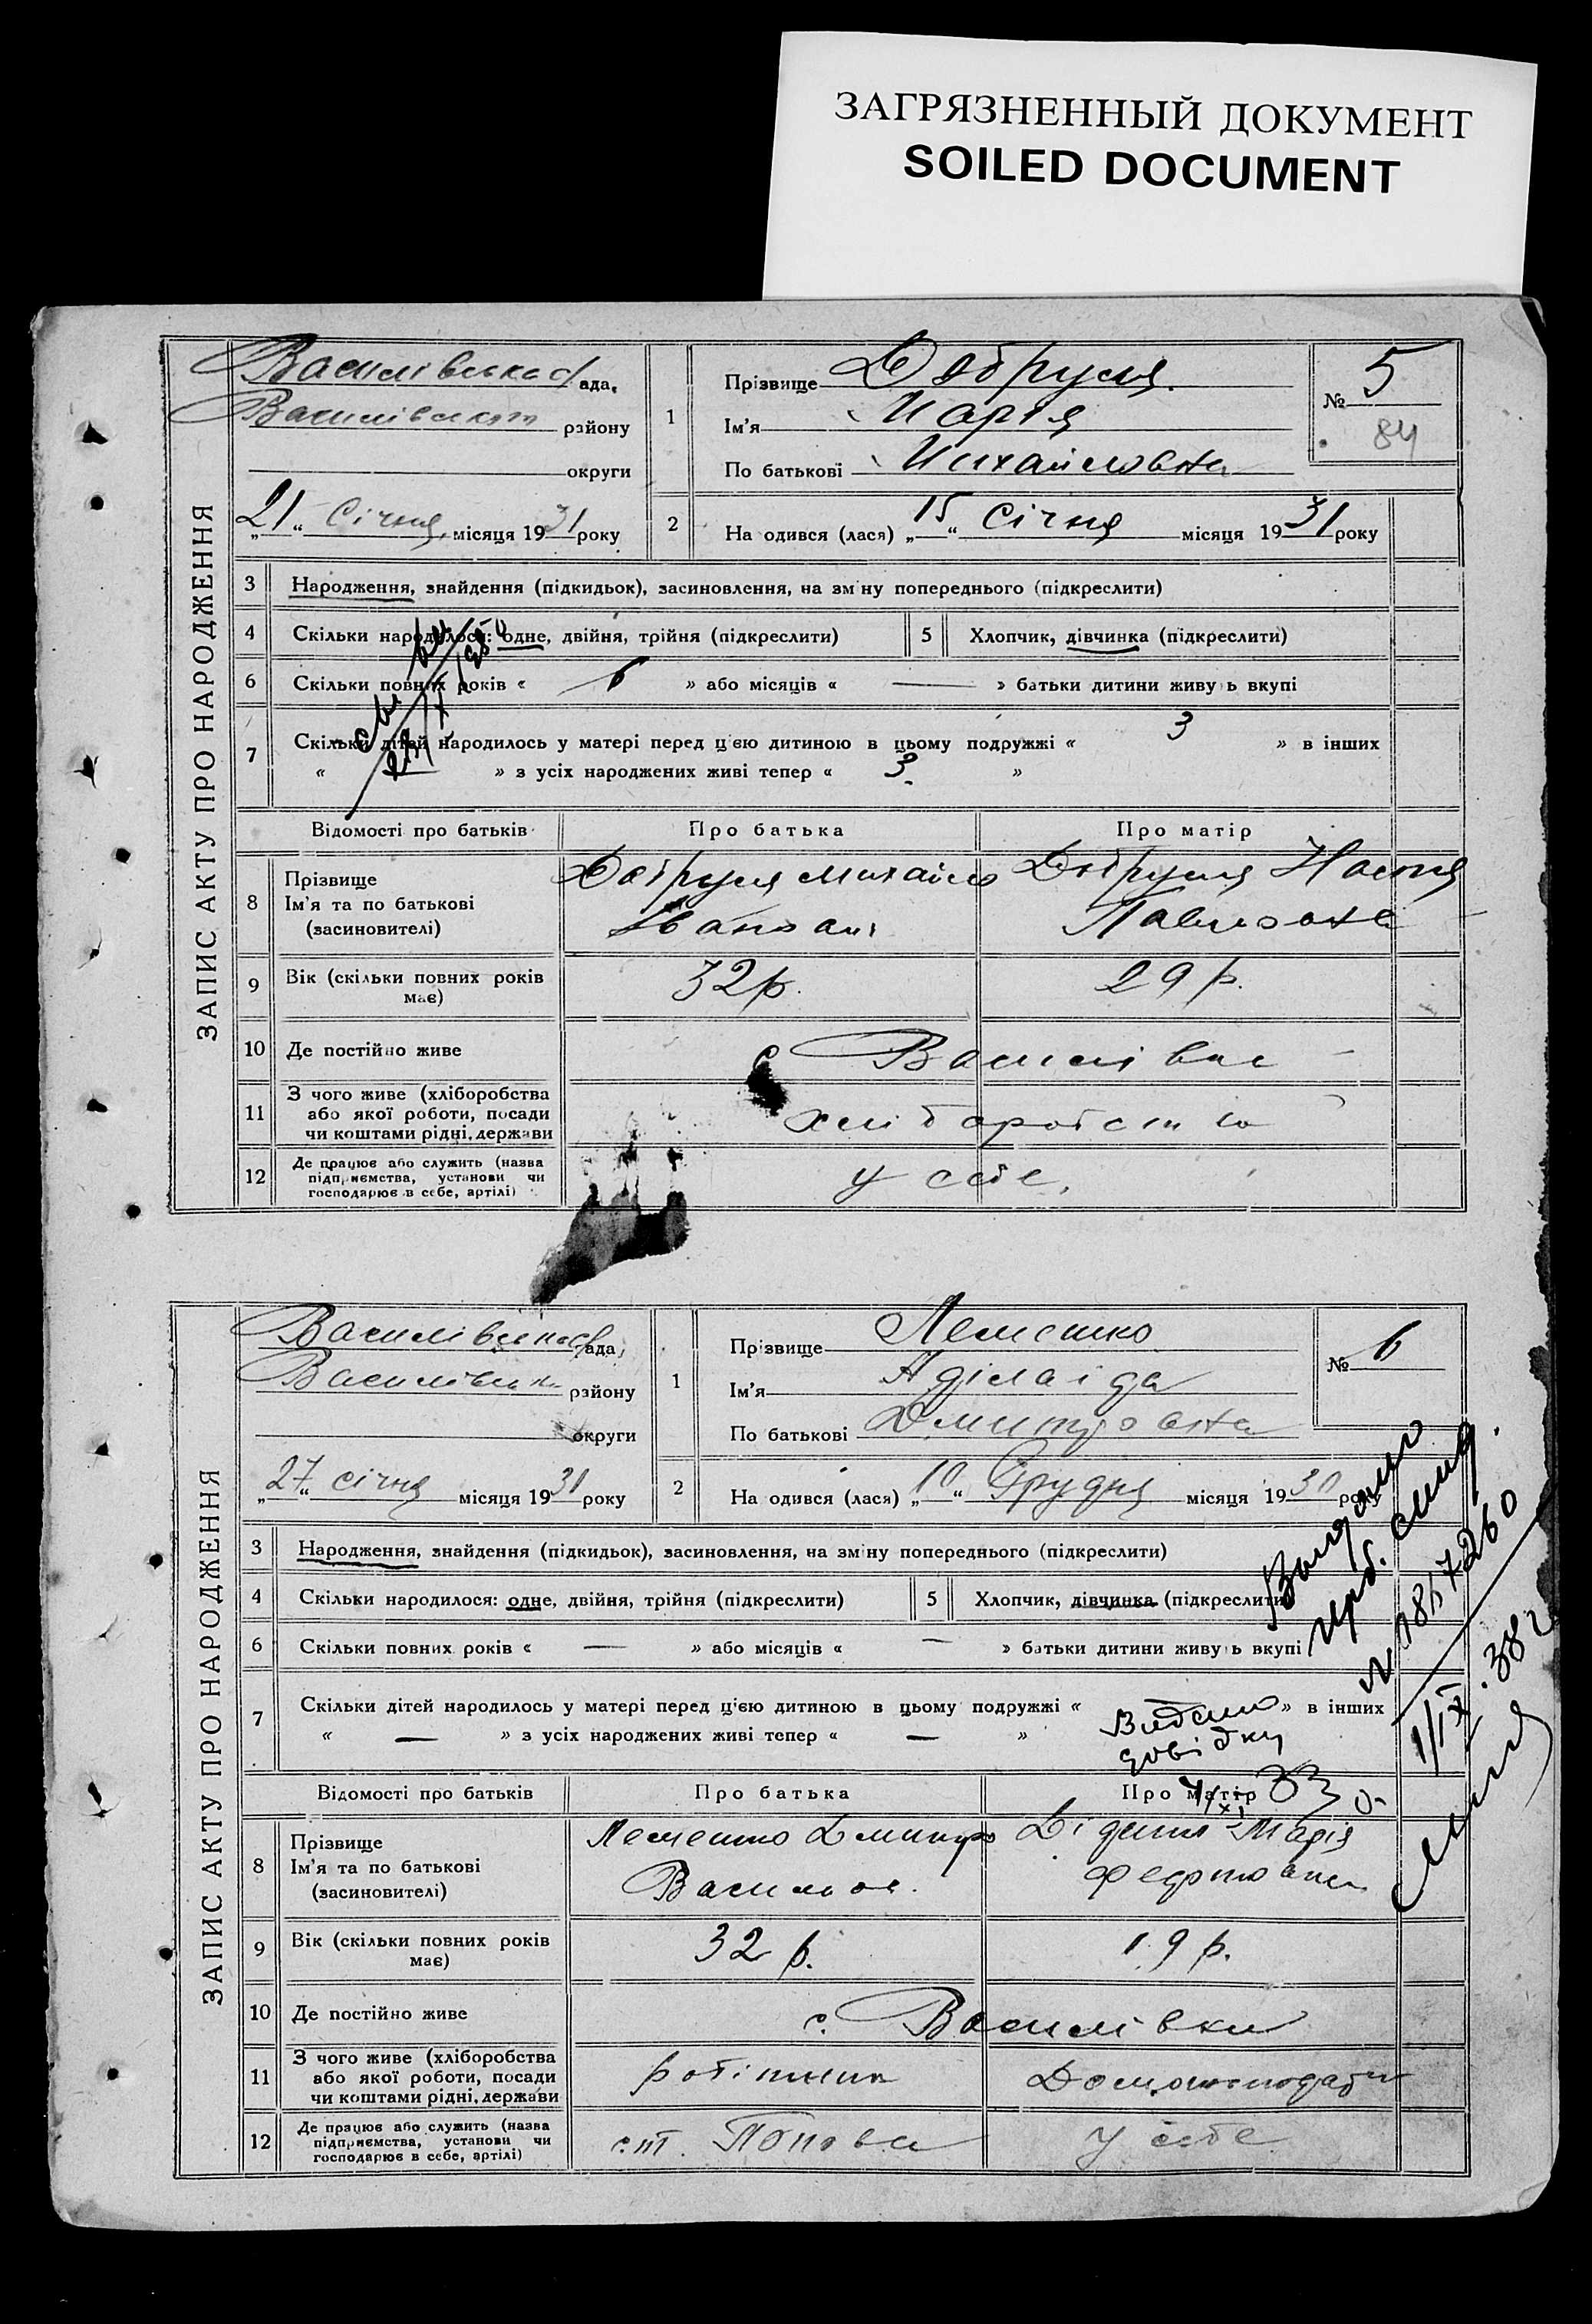 ЗАГРЯЗНЕННЫЙ ДОКУМЕНТ
SOILED DOCUMENT
ЗАПИС АКТУ ПРО НАРОДЖЕННЯ
Василівська рада,
району
округи
„21“ Січня місяця 1931 року
1
Прізвище Добруля.
Ім'я Марія
По батькові Михайловна
№ 5
84
2
На одився (лася) „15“ Січня місяця 1931 року
3 Народження, знайдення (підкидьок), засиновлення, на зміну попереднього (підкреслити)
4 Скільки народилося: одне, двійня, трійня (підкреслити) 5 Хлопчик, дівчинка (підкреслити)
6 Скільки повних років « 6 » або місяців « — » батьки дитини живуть вкупі
7 Скільки дітей народилось у матері перед цією дитиною в цьому подружжі « 3 » в інших
« » з усіх народжених живі тепер « 3. »
Відомості про батьків Про батька Про матір
8 Прізвище
Ім'я та по батькові
(засиновителі)
Добруля Михайло
Добруля Настя
Павловна
9 Вік (скільки повних років має) 32 р. 29 р.
10 Де постійно живе с Василівка
11 З чого живе (хліборобства
або якої роботи, посади
чи коштами рідні, держави
хліборобство
12 Де працює або служить (назва
підприємства, установи чи
господарює в себе, артілі)
у себе,
ЗАПИС АКТУ ПРО НАРОДЖЕННЯ
Василівська рада,
району
округи
„27“ січня місяця 1931 року
1
Прізвище Лемешко
Ім'я Аділаіда
По батькові Дмитровна
№ 6
2
На одився (лася) „10“ Грудня місяця 1930 року
3 Народження, знайдення (підкидьок), засиновлення, на зміну попереднього (підкреслити)
4 Скільки народилося: одне, двійня, трійня (підкреслити) 5 Хлопчик, дівчинка (підкреслити)
6 Скільки повних років « — » або місяців « — » батьки дитини живуть вкупі
7 Скільки дітей народилось у матері перед цією дитиною в цьому подружжі « — » в інших
« — » з усіх народжених живі тепер « — »
Видано
довідку
Відомості про батьків Про батька Про матір
8 Прізвище
Ім'я та по батькові
(засиновителі)
Лемешко Дмитро
Васильов.
Марія
9 Вік (скільки повних років має) 32 р. 19 р.
10 Де постійно живе с. Василівки
11 З чого живе (хліборобства
або якої роботи, посади
чи коштами рідні, держави
робітник
Домогосподарка
12 Де працює або служить (назва
підприємства, установи чи
господарює в себе, артілі)
ст. Попова
у себе